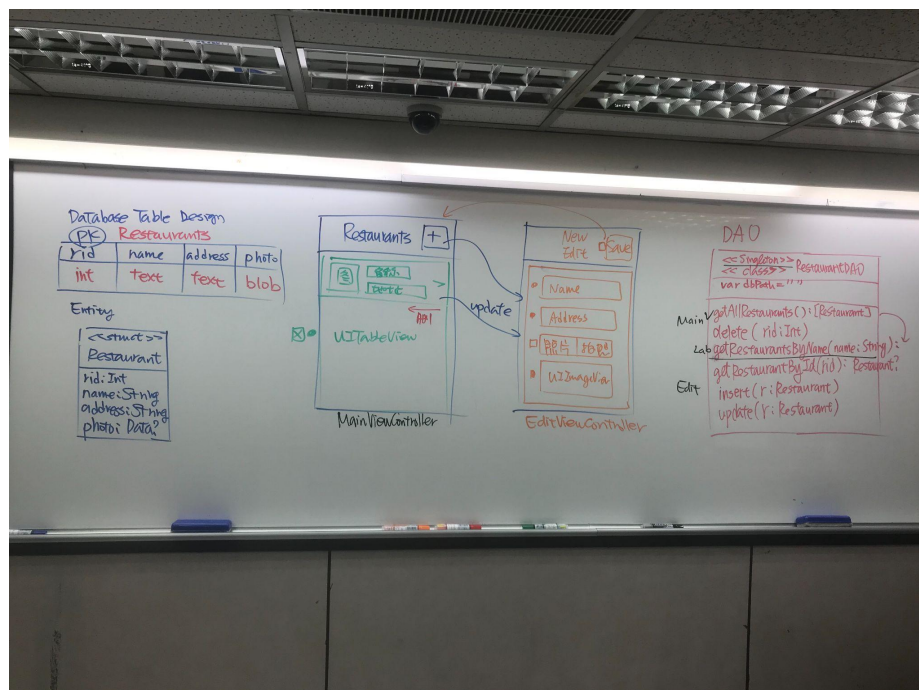 Database Table Design
PK Restaurants
rid name address photo
int text text blob
Entity
<<struct>>
Restaurant
rid: Int
name: String
address: String
photo: Data?
Restaurants +
update
UITableView
MainViewController
New
Edit
Save
Name
Address
照片
UIImageView
EditViewController
DAO
<<Singleton>>
<<class>> RestaurantDAO
var dbPath = ""
Main
getAllRestaurants(): [Restaurant]
delete(rid: Int)
Lab
getRestaurantsByName(name: String):
getRestaurantById(rid): Restaurant?
Edit
insert(r: Restaurant)
update(r: Restaurant)